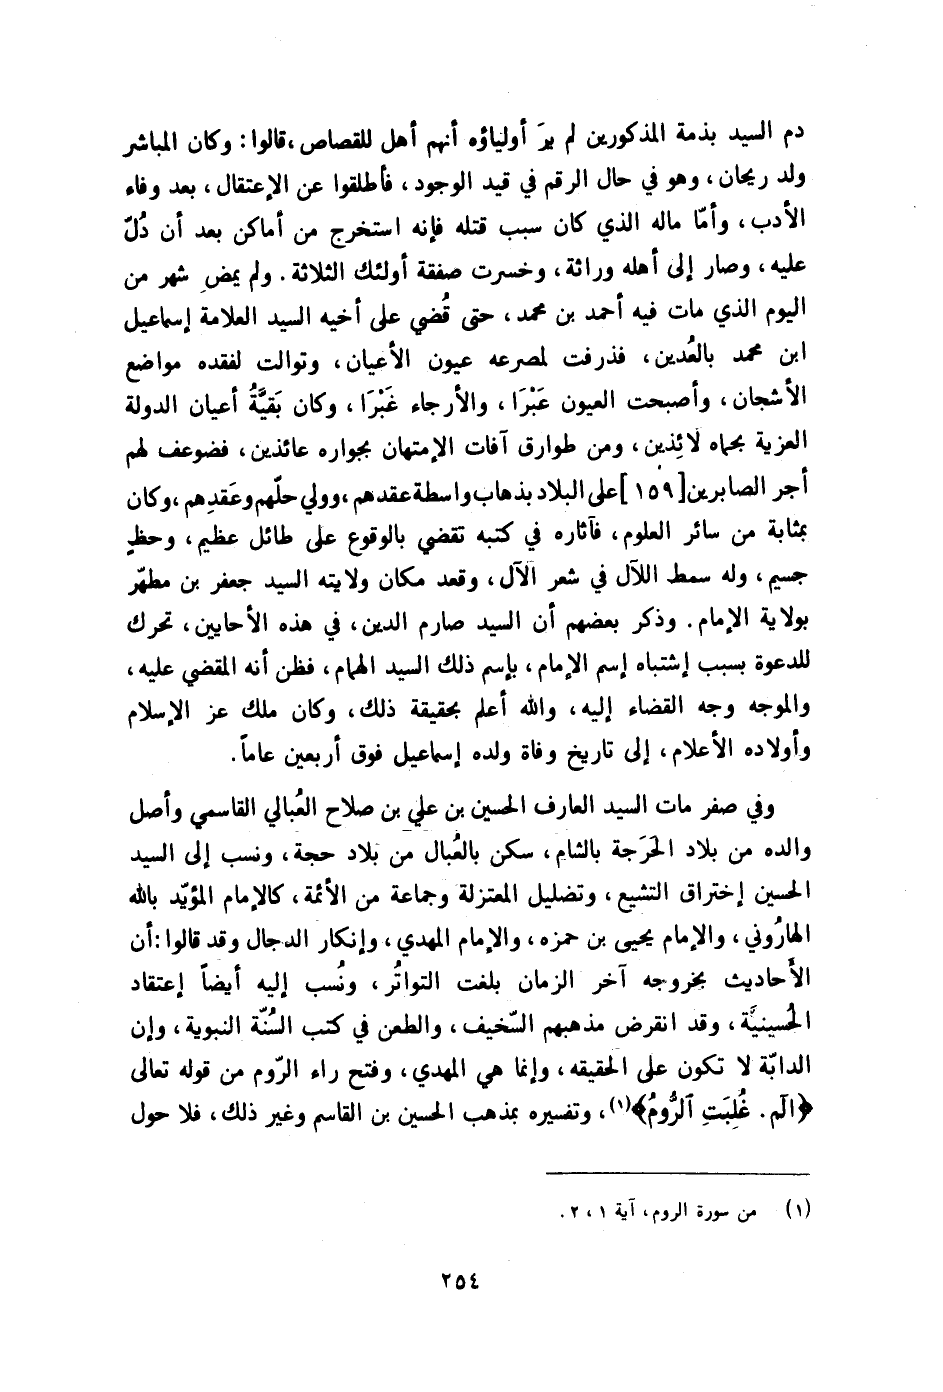 دم السيد بذمة المذكورين لم يرَ أولياؤه أنهم أهل للقصاص، قالوا: وكان المباشر
ولد ريحان، وهو في حال الرقم في قيد الوجود، فأطلقوا عن الإعتقال، بعد وفاء
الأدب، وأمّا ماله الذي كان سبب قتله فإنه استخرج من أماكن بعد أن دُلّ
عليه، وصار إلى أهله وراثة، وخسرت صفقة أولئك الثلاثة. ولم يمضِ شهر من
اليوم الذي مات فيه أحمد بن محمد، حتى قُضي على أخيه السيد العلامة إسماعيل
ابن محمد بالعُدين، فذرفت لمصرعه عيون الأعيان، وتوالت لفقده مواضع
الأشجان، وأصبحت العيون عَبْرَا، والأرجاء غَبْرَا، وكان بَقيَّةُ أعيان الدولة
العزية بحماه لائِذين، ومن طوارق آفات الإمتهان بجواره عائذين، فضوعف لهم
أجر الصابرين[١٥٩]على البلاد بذهاب واسطة عقدهم، وولي حلّهم وعَقدِهم، وكان
بمثابة من سائر العلوم، فآثاره في كتبه تقضي بالوقوع على طائل عظيم، وحظٍ
جسيم، وله سمط اللآل في شعر الآل، وقعد مكان ولايته السيد جعفر بن مطهّر
بولاية الإمام. وذكر بعضهم أن السيد صارم الدين، في هذه الأحايين، تحرك
للدعوة بسبب إشتباه إسم الإمام، بإسم ذلك السيد الهمام، فظن أنه المقضي عليه،
والموجه وجه القضاء إليه، والله أعلم بحقيقة ذلك، وكان ملك عز الإسلام
وأولاده الأعلام، إلى تاريخ وفاة ولده إسماعيل فوق أربعين عاماً.
وفي صفر مات السيد العارف الحسين بن علي بن صلاح العُبالي القاسمي وأصل
والده من بلاد الحَرَجة بالشام، سكن بالعُبال من بلاد حجة، ونسب إلى السيد
الحسين إختراق التشيع، وتضليل المعتزلة وجماعة من الأئمة، كالإمام المؤيّد بالله
الهارُوني، والإمام يحيى بن حمزه، والإمام المهدي، وإنكار الدجال وقد قالوا: أن
الأَحاديث بخروجه آخر الزمان بلغت التواتُر، ونُسب إليه أيضاً إعتقاد
الحُسينيَّة، وقد انقرض مذهبهم السّخيف، والطعن في كتب السُنّة النبوية، وإن
الدابّة لا تكون على الحقيقه، وإنما هي المهدي، وفتح راء الرّوم من قوله تعالى
﴿الَم. غُلِبَتِ ٱلرُّومُ﴾(١)، وتفسيره بمذهب الحسين بن القاسم وغير ذلك، فلا حول
(١) من سورة الروم، آية ١، ٢.
٢٥٤